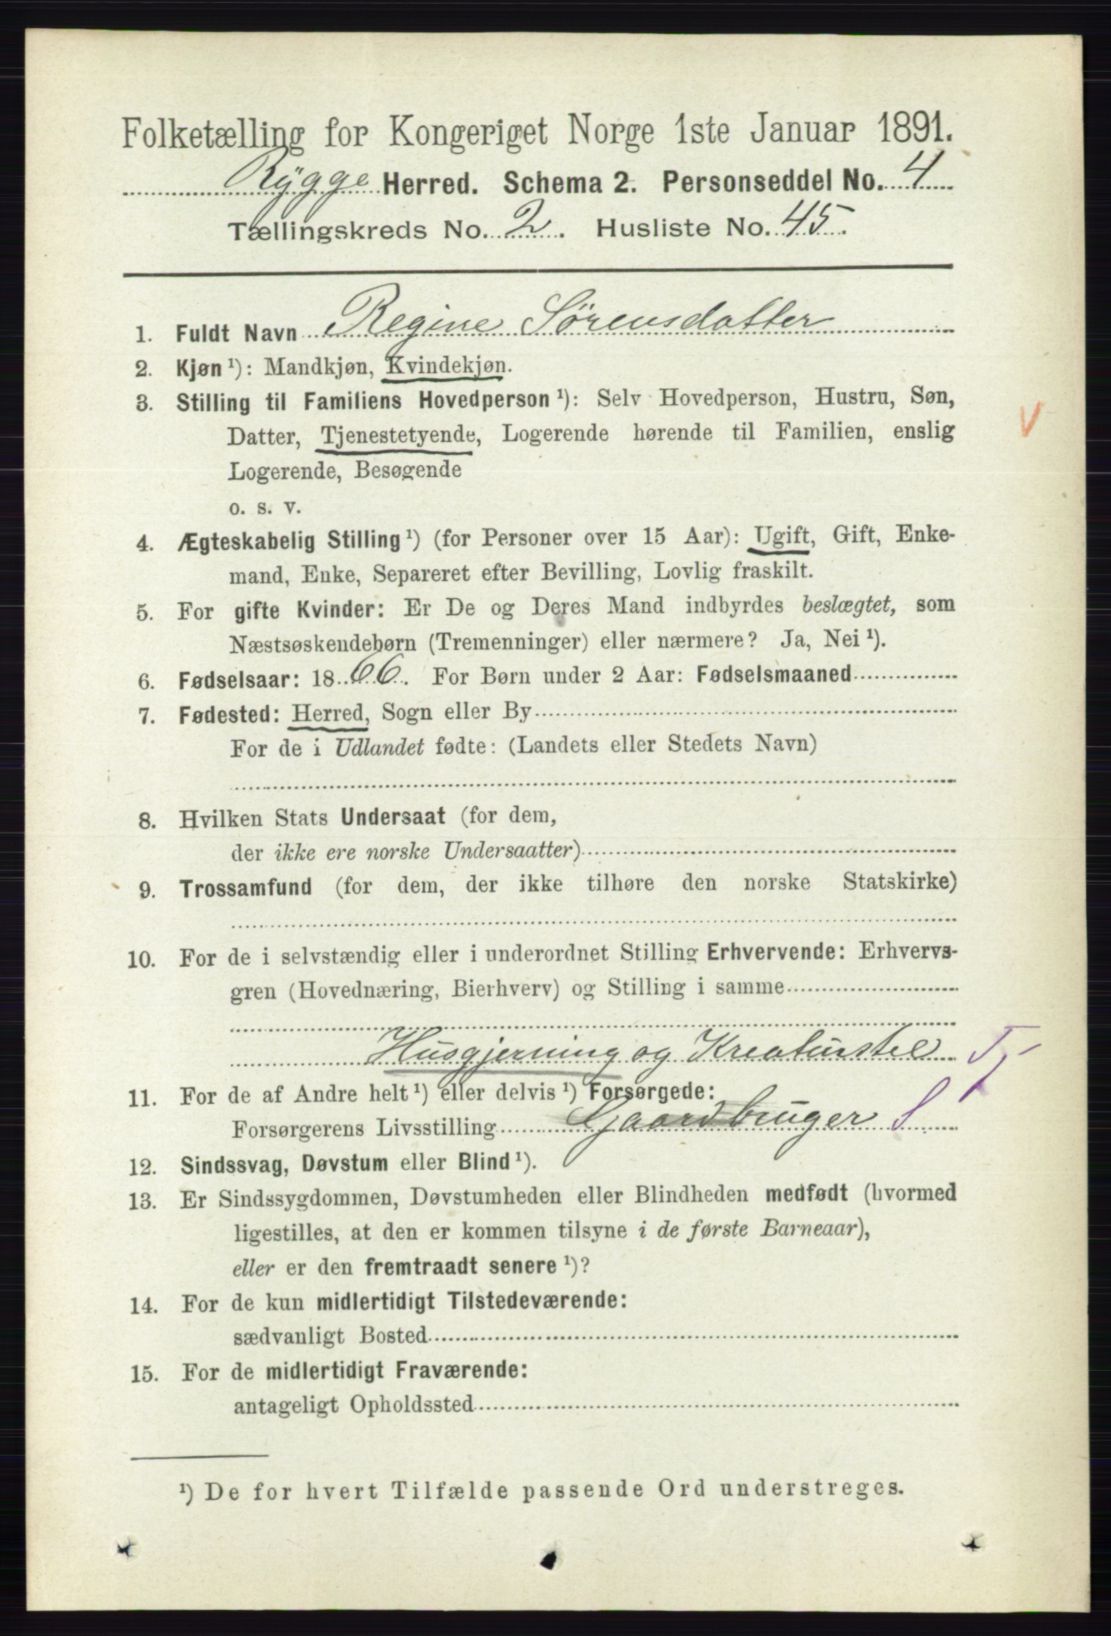 Folketælling for Kongeriget Norge 1ste Januar 1891.
Rygge Herred. Schema 2. Personseddel No. 4
Tællingskreds No. 2. Husliste No. 45.
1. Fuldt Navn Regine Sørensdatter
2. Kjøn ¹): Mandkjøn, Kvindekjøn.
3. Stilling til Familiens Hovedperson ¹): Selv Hovedperson, Hustru, Søn,
Datter, Tjenestetyende, Logerende hørende til Familien, enslig
Logerende, Besøgende
o. s. v.
4. Ægteskabelig Stilling ¹) (for Personer over 15 Aar): Ugift, Gift, Enke-
mand, Enke, Separeret efter Bevilling, Lovlig fraskilt.
5. For gifte Kvinder: Er De og Deres Mand indbyrdes beslægtet, som
Næstsøskendebørn (Tremenninger) eller nærmere? Ja, Nei ¹).
6. Fødselsaar: 1866. For Børn under 2 Aar: Fødselsmaaned
7. Fødested: Herred, Sogn eller By
For de i Udlandet fødte: (Landets eller Stedets Navn)
8. Hvilken Stats Undersaat (for dem,
der ikke ere norske Undersaatter)
9. Trossamfund (for dem, der ikke tilhøre den norske Statskirke)
10. For de i selvstændig eller i underordnet Stilling Erhvervende: Erhvervs-
gren (Hovednæring, Bierhverv) og Stilling i samme
Husgjerning og Kreaturstel Tj
11. For de af Andre helt ¹) eller delvis ¹) Forsørgede:
Forsørgerens Livsstilling Gaardbruger S
12. Sindssvag, Døvstum eller Blind ¹).
13. Er Sindssygdommen, Døvstumheden eller Blindheden medfødt (hvormed
ligestilles, at den er kommen tilsyne i de første Barneaar),
eller er den fremtraadt senere ¹)?
14. For de kun midlertidigt Tilstedeværende:
sædvanligt Bosted
15. For de midlertidigt Fraværende:
antageligt Opholdssted
¹) De for hvert Tilfælde passende Ord understreges.